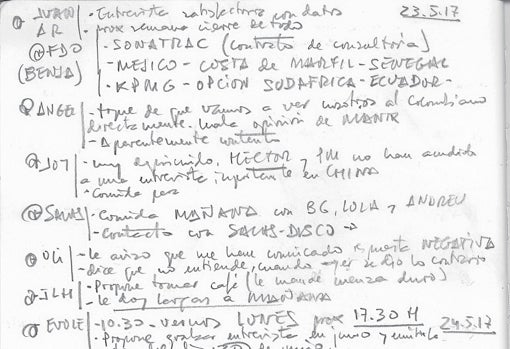 JUAN | · Entrevista satisfactoria con datos 23.5.17
AR | · prox semana cierre de todo
@FDO | - SONATRAC (contrato de consultoria)
(BENJA) | - MEJICO - COSTA DE MARFIL - SENEGAL
- KPMG - OPCION SUDAFRICA - ECUADOR -
ANGEL | - toque de que vamos a ver nosotros al colombiano
directamente. mala opinión de
- Aparentemente contento
JOY | - muy HECTOR y no han acudido
a una entrevista importante en CHINA
- Comida
@SALAS | - Comida MAÑANA con BG, LOLA y ANDREU
- Contacto con SALAS-DISCO →
OLI | - le aviso que me han comunicado respuesta NEGATIVA
- dice que no entiende, cuando ayer se dijo lo contrario
JLH | - Propone tomar café (le mandé duro)
- le doy largas a MAÑANA
EVOLE | - 10.30 - vernos LUNES prox 17.30 H 24.5.17
· Propone grabar entrevista en junio y emitirla